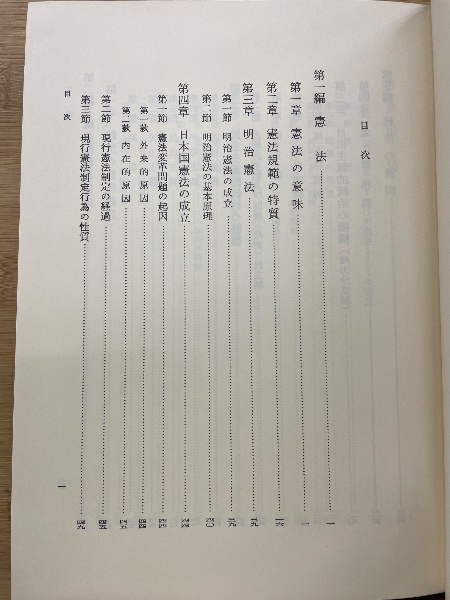 目次
第一編 憲法…………一
第一章 憲法の意味…………一
第二章 憲法規範の特質…………一六
第三章 明治憲法…………二九
第一節 明治憲法の成立…………二九
第二節 明治憲法の基本原理…………四〇
第四章 日本国憲法の成立…………四四
第一節 憲法変革問題の起因…………四四
第一款 外来的原因…………四四
第二款 内在的原因…………四五
第二節 現行憲法制定の経過…………四五
第三節 現行憲法制定行為の性質…………四九
目次
一